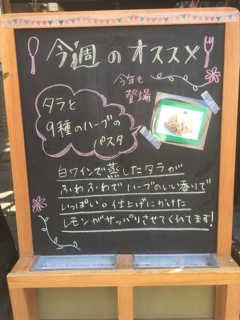 今週のオススメ
今年も
登場
タラと
9種のハーブの
パスタ
白ワインで蒸したタラが
ふわふわで ハーブのいい香りで
いっぱい。仕上げにかけた
レモンがサッパリさせてくれてます!